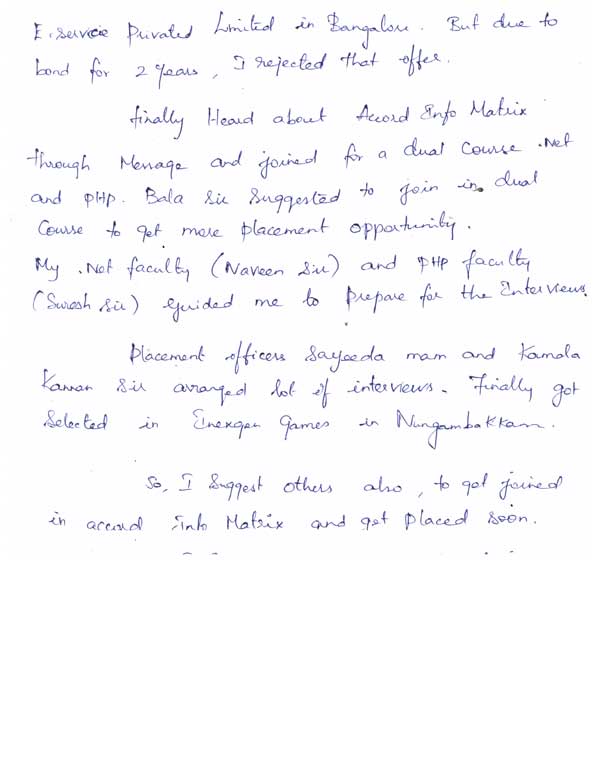 E. service Privated Limited in Bangalore. But due to
bond for 2 years, I rejected that offer.
finally Heard about Accord Info Matrix
through Message and joined for a dual course .Net
and PHP. Bala Sir Suggested to join in dual
Course to get more placement opportunity.
My .Net faculty (Naveen Sir) and PHP faculty
(Suresh Sir) guided me to prepare for the Interviews.
Placement officers Sayeeda mam and Kamala
Kannan Sir arranged lot of interviews. Finally got
Selected in Enexgen Games in Nungambakkam.
So, I Suggest others also, to get joined
in accord Info Matrix and get placed soon.